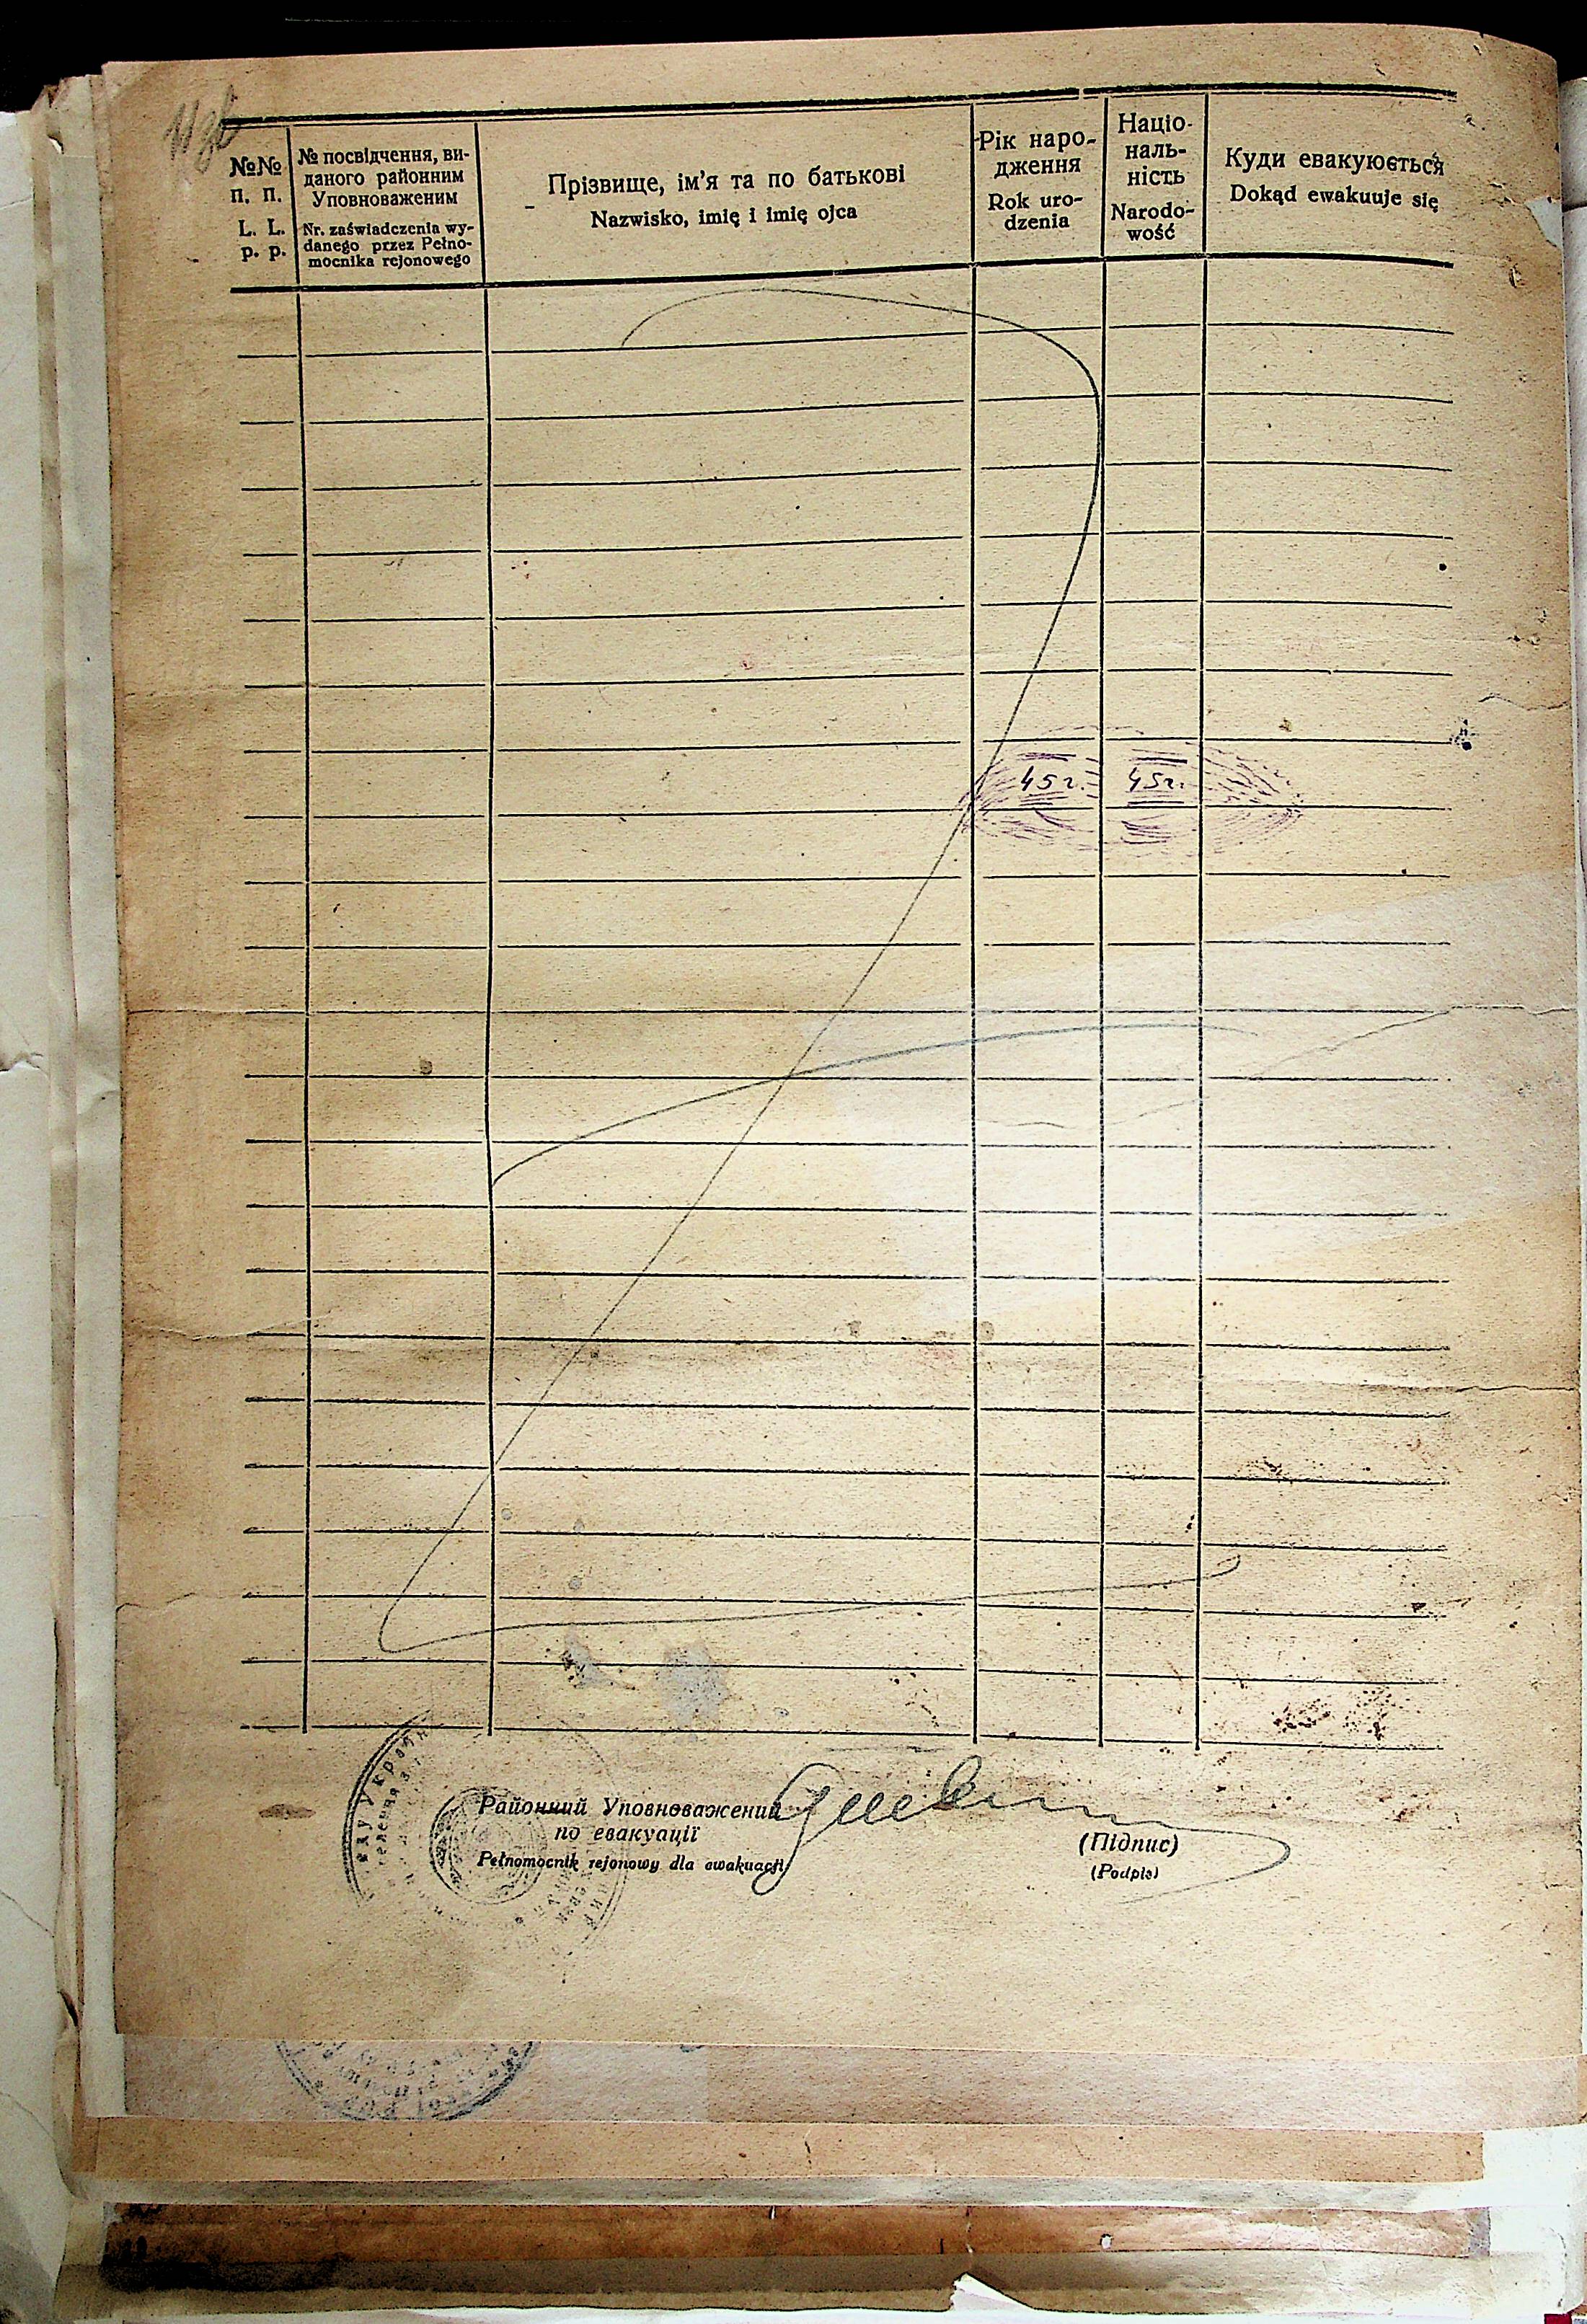 №№
п. п.
L. L.
p. p.
№ посвідчення, ви-
даного районним
Уповноваженим
Nr. zaświadczenia wy-
danego przez Pełno-
mocnika rejonowego
Прізвище, ім'я та по батькові
Nazwisko, imię i imię ojca
Рік наро-
дження
Rok uro-
dzenia
Націо-
наль-
ність
Narodo-
wość
Куди евакуюється
Dokąd ewakuuje się
45г. 45г.
Районний Уповноважений
по евакуації
Pełnomocnik rejonowy dla ewakuacji
(Підпис)
(Podpis)